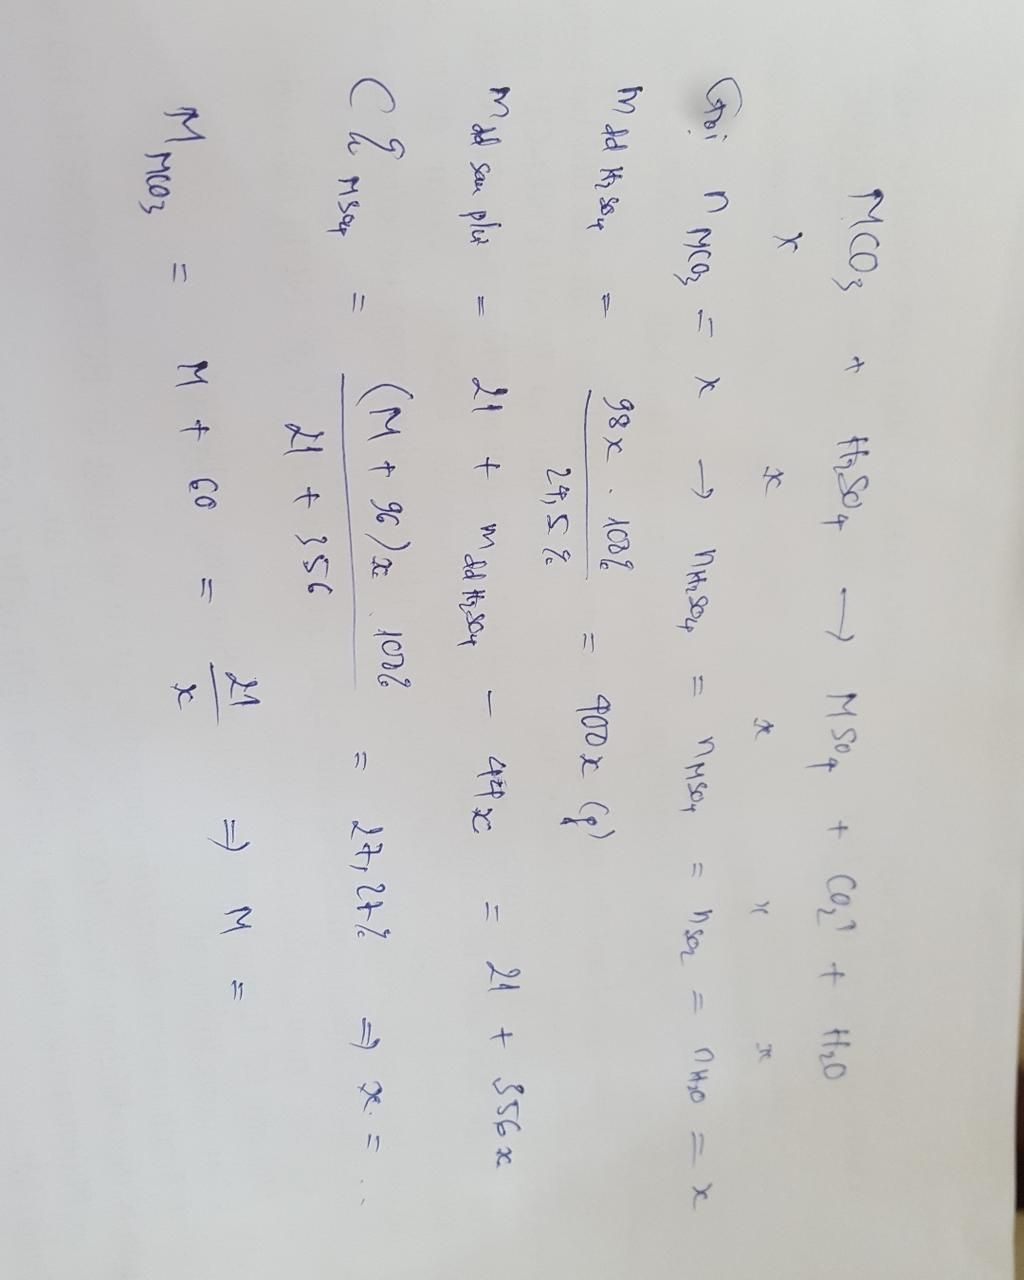 MCO₃ + H₂SO₄ → MSO₄ + CO₂↑ + H₂O
x x x x x
Gọi n MCO₃ = x → n H₂SO₄ = n MSO₄ = n SO₂ = n H₂O = x
m dd H₂SO₄ = 98x . 100% / 24,5% = 400x (g)
m dd sau p/ư = 21 + m dd H₂SO₄ - 44x = 21 + 356x
C% MSO₄ = (M + 96)x . 100% / 21 + 356 = 27,27% ⇒ x = ...
M MCO₃ = M + 60 = 21 / x ⇒ M =